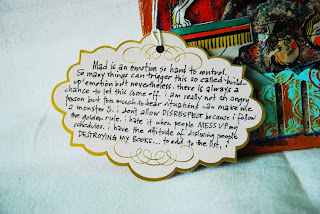 Mad is an emotion so hard to control.
So many things can trigger this so called "build
up" emotion but nevertheless, there is always a
chance to let this some off. i am really not an angry
person but too much to bear situations can make me
a monster :). i don't allow DISRESPECT because i follow
the golden rule. i hate it when people MESS UP my
schedules. i have the attitude of disliking people
DESTROYING MY BOOKS... to add to the list, :)